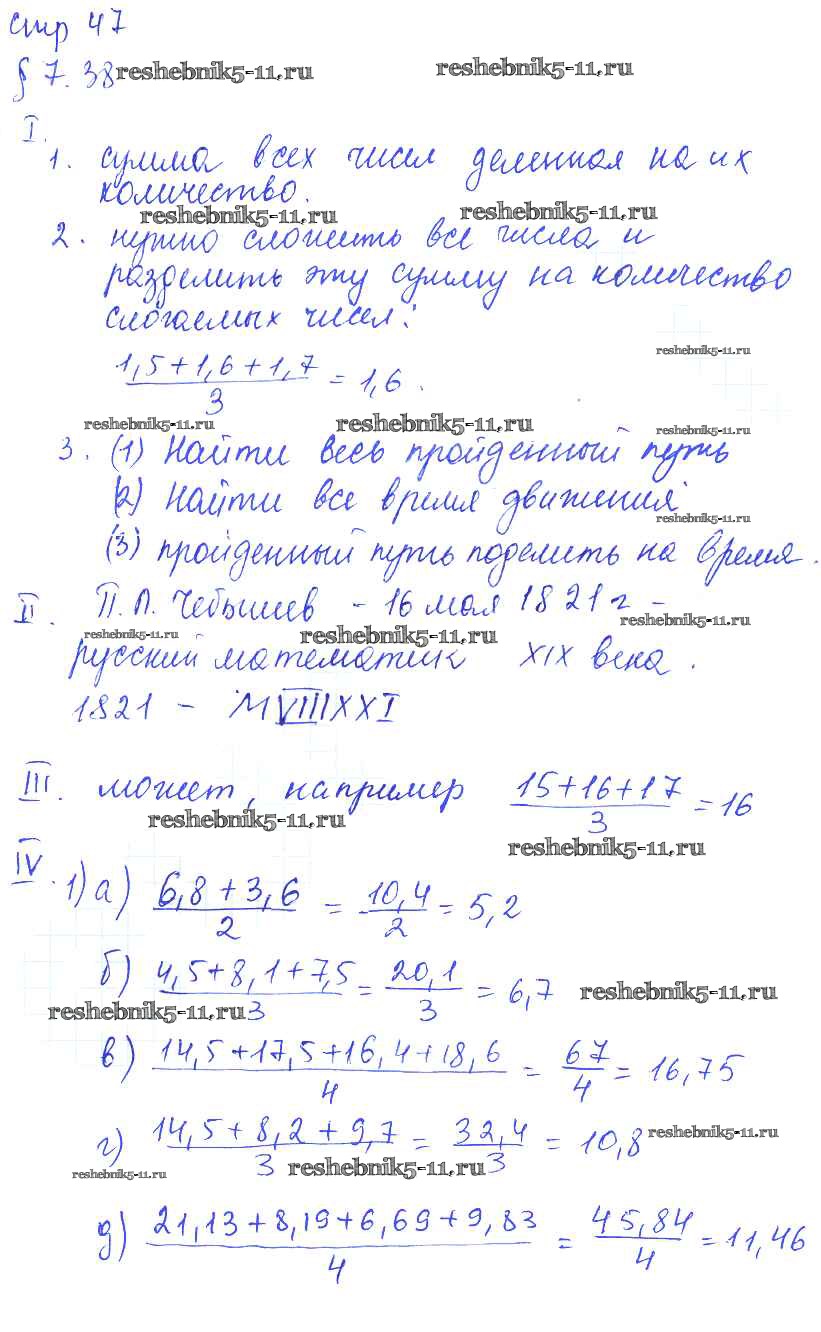 стр 47
§ 7.38 reshebnik5-11.ru reshebnik5-11.ru
I.
1. сумма всех чисел деленная на их
количество.
reshebnik5-11.ru reshebnik5-11.ru
2. нужно сложить все числа и
разделить эту сумму на количество
слогаемых чисел:
reshebnik5-11.ru
(1,5+1,6+1,7)/3 = 1,6.
reshebnik5-11.ru reshebnik5-11.ru reshebnik5-11.ru
3. (1) Найти весь пройденный путь
(2) Найти все время движения
reshebnik5-11.ru
(3) пройденный путь поделить на время.
II. П.Л. Чебышев - 16 мая 1821 г -
reshebnik5-11.ru reshebnik5-11.ru reshebnik5-11.ru
русский математик XIX века.
1821 - MVIIIXXI
III. может, например (15+16+17)/3 = 16
reshebnik5-11.ru reshebnik5-11.ru
IV. 1) а) (6,8+3,6)/2 = 10,4/2 = 5,2
б) (4,5+8,1+7,5)/3 = 20,1/3 = 6,7 reshebnik5-11.ru
reshebnik5-11.ru
в) (14,5+17,5+16,4+18,6)/4 = 67/4 = 16,75
г) (14,5+8,2+9,7)/3 = 32,4/3 = 10,8 reshebnik5-11.ru
reshebnik5-11.ru reshebnik5-11.ru
д) (21,13+8,19+6,69+9,83)/4 = 45,84/4 = 11,46